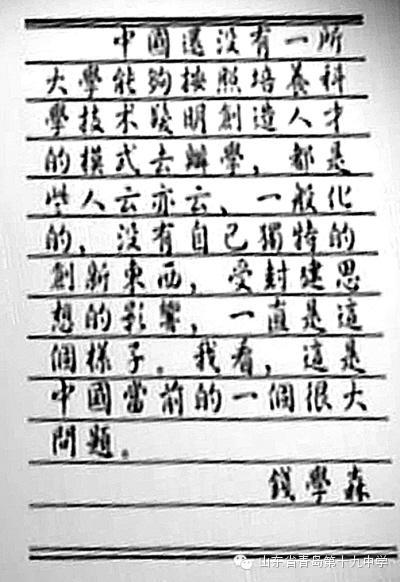 中國還没有一所
大學能夠按照培養科
學技术發明創造人才
的模式去辦學，都是
些人云亦云、一般化
的，没有自己獨特的
創新東西，受封建思
想的影響，一直是這
個樣子。我看，這是
中國當前的一個很大
問題。
錢學森
山东省青岛第十九中学